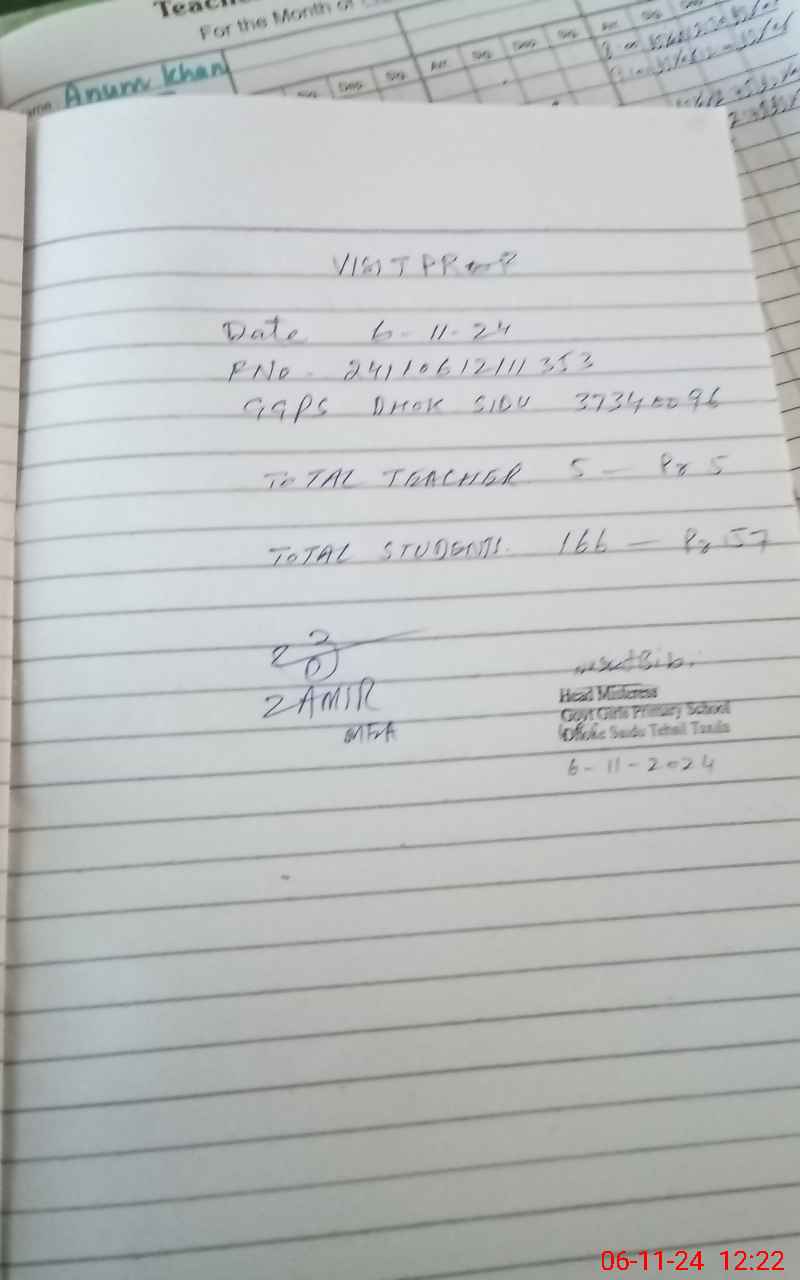 Teac
For the Month of
Anum Khan
VISIT PROOF
Date 6-11-24
FNo. 24110612111353
GGPS DHOK SIDU 37340096
TOTAL TEACHER 5 — Pr 5
TOTAL STUDENTS. 166 — Pr 157
ZAMIR
MEA
Head Mistress
Govt Girls Primary School
Dhoke Saidu Tehsil Taxila
6-11-2024
06-11-24 12:22